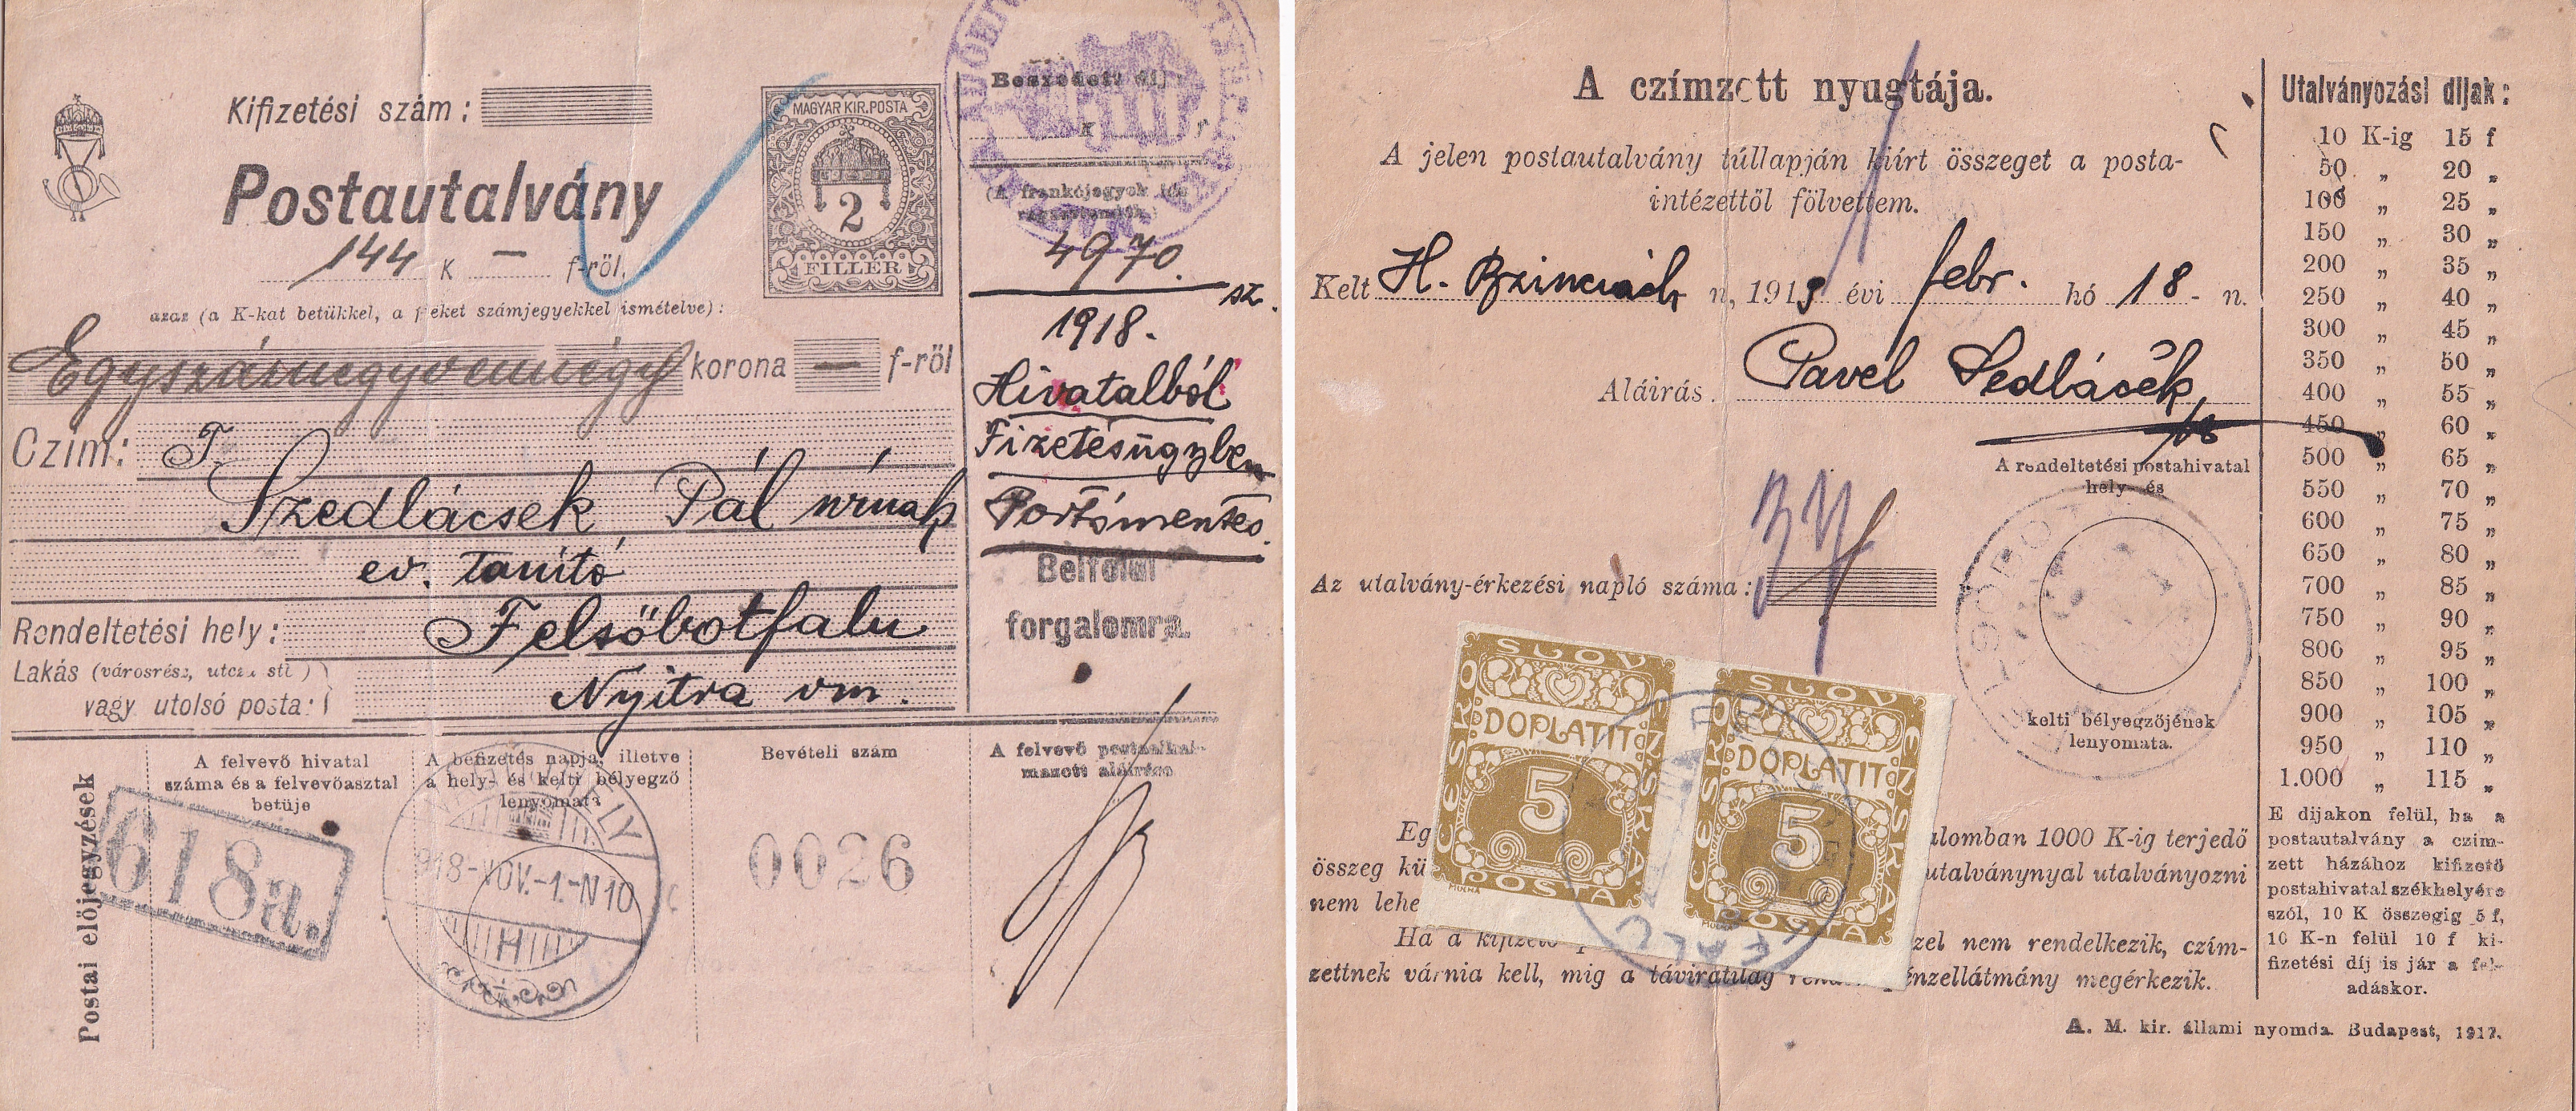 Kifizetési szám:
Postautalvány
144 K — f-ről,
azaz (a K-kat betükkel, a f-eket számjegyekkel ismételve):
Egyszáznegyvennégy korona — f-ről
Czím: T.
Szedlácsek Pál úrnak
ev. tanító
Rendeltetési hely: Felsőbotfalu
Lakás (városrész, utcza stb.)
vagy utolsó posta: Nyitra vm.
MAGYAR KIR. POSTA
2
FILLÉR
Beszedett díj:
K f
(A frankójegyek ide
ragasztandók.)
4970. sz.
1918.
Hivatalból
Fizetésügyben
Portómentes.
Belföldi
forgalomra.
Postai előjegyzések
A felvevő hivatal
száma és a felvevőasztal
betüje
618a.
A befizetés napja, illetve
a hely- és kelti bélyegző
lenyomata
918-NOV.-1.-N10
H
Bevételi szám
0026
A felvevő postaalkal-
mazott aláírása
A czímzett nyugtája.
A jelen postautalvány túllapján kiírt összeget a posta-
intézettől fölvettem.
Kelt H. n, 1919 évi febr. hó 18- n.
Aláirás. Pavel Sedláček
A rendeltetési postahivatal
hely- és
kelti bélyegzőjének
lenyomata.
Az utalvány-érkezési napló száma:
ČESKO SLOVENSKÁ POSTA
DOPLATIT
5
MUCHA
ČESKO SLOVENSKÁ POSTA
DOPLATIT
5
MUCHA
Eg lomban 1000 K-ig terjedő
összeg kü utalványnyal utalványozni
nem lehe
Ha a kifizető p zel nem rendelkezik, czím-
zettnek várnia kell, mig a táviratilag énzellátmány megérkezik.
Utalványozási díjak:
10 K-ig 15 f
50 „ 20 „
100 „ 25 „
150 „ 30 „
200 „ 35 „
250 „ 40 „
300 „ 45 „
350 „ 50 „
400 „ 55 „
450 „ 60 „
500 „ 65 „
550 „ 70 „
600 „ 75 „
650 „ 80 „
700 „ 85 „
750 „ 90 „
800 „ 95 „
850 „ 100 „
900 „ 105 „
950 „ 110 „
1.000 „ 115 „
E dijakon felül, ha a
postautalvány a czím-
zett házához kifizető
postahivatal székhelyére
szól, 10 K összegig 5 f,
10 K-n felül 10 f ki-
fizetési díj is jár a fel-
adáskor.
A. M. kir. állami nyomda. Budapest, 1917.